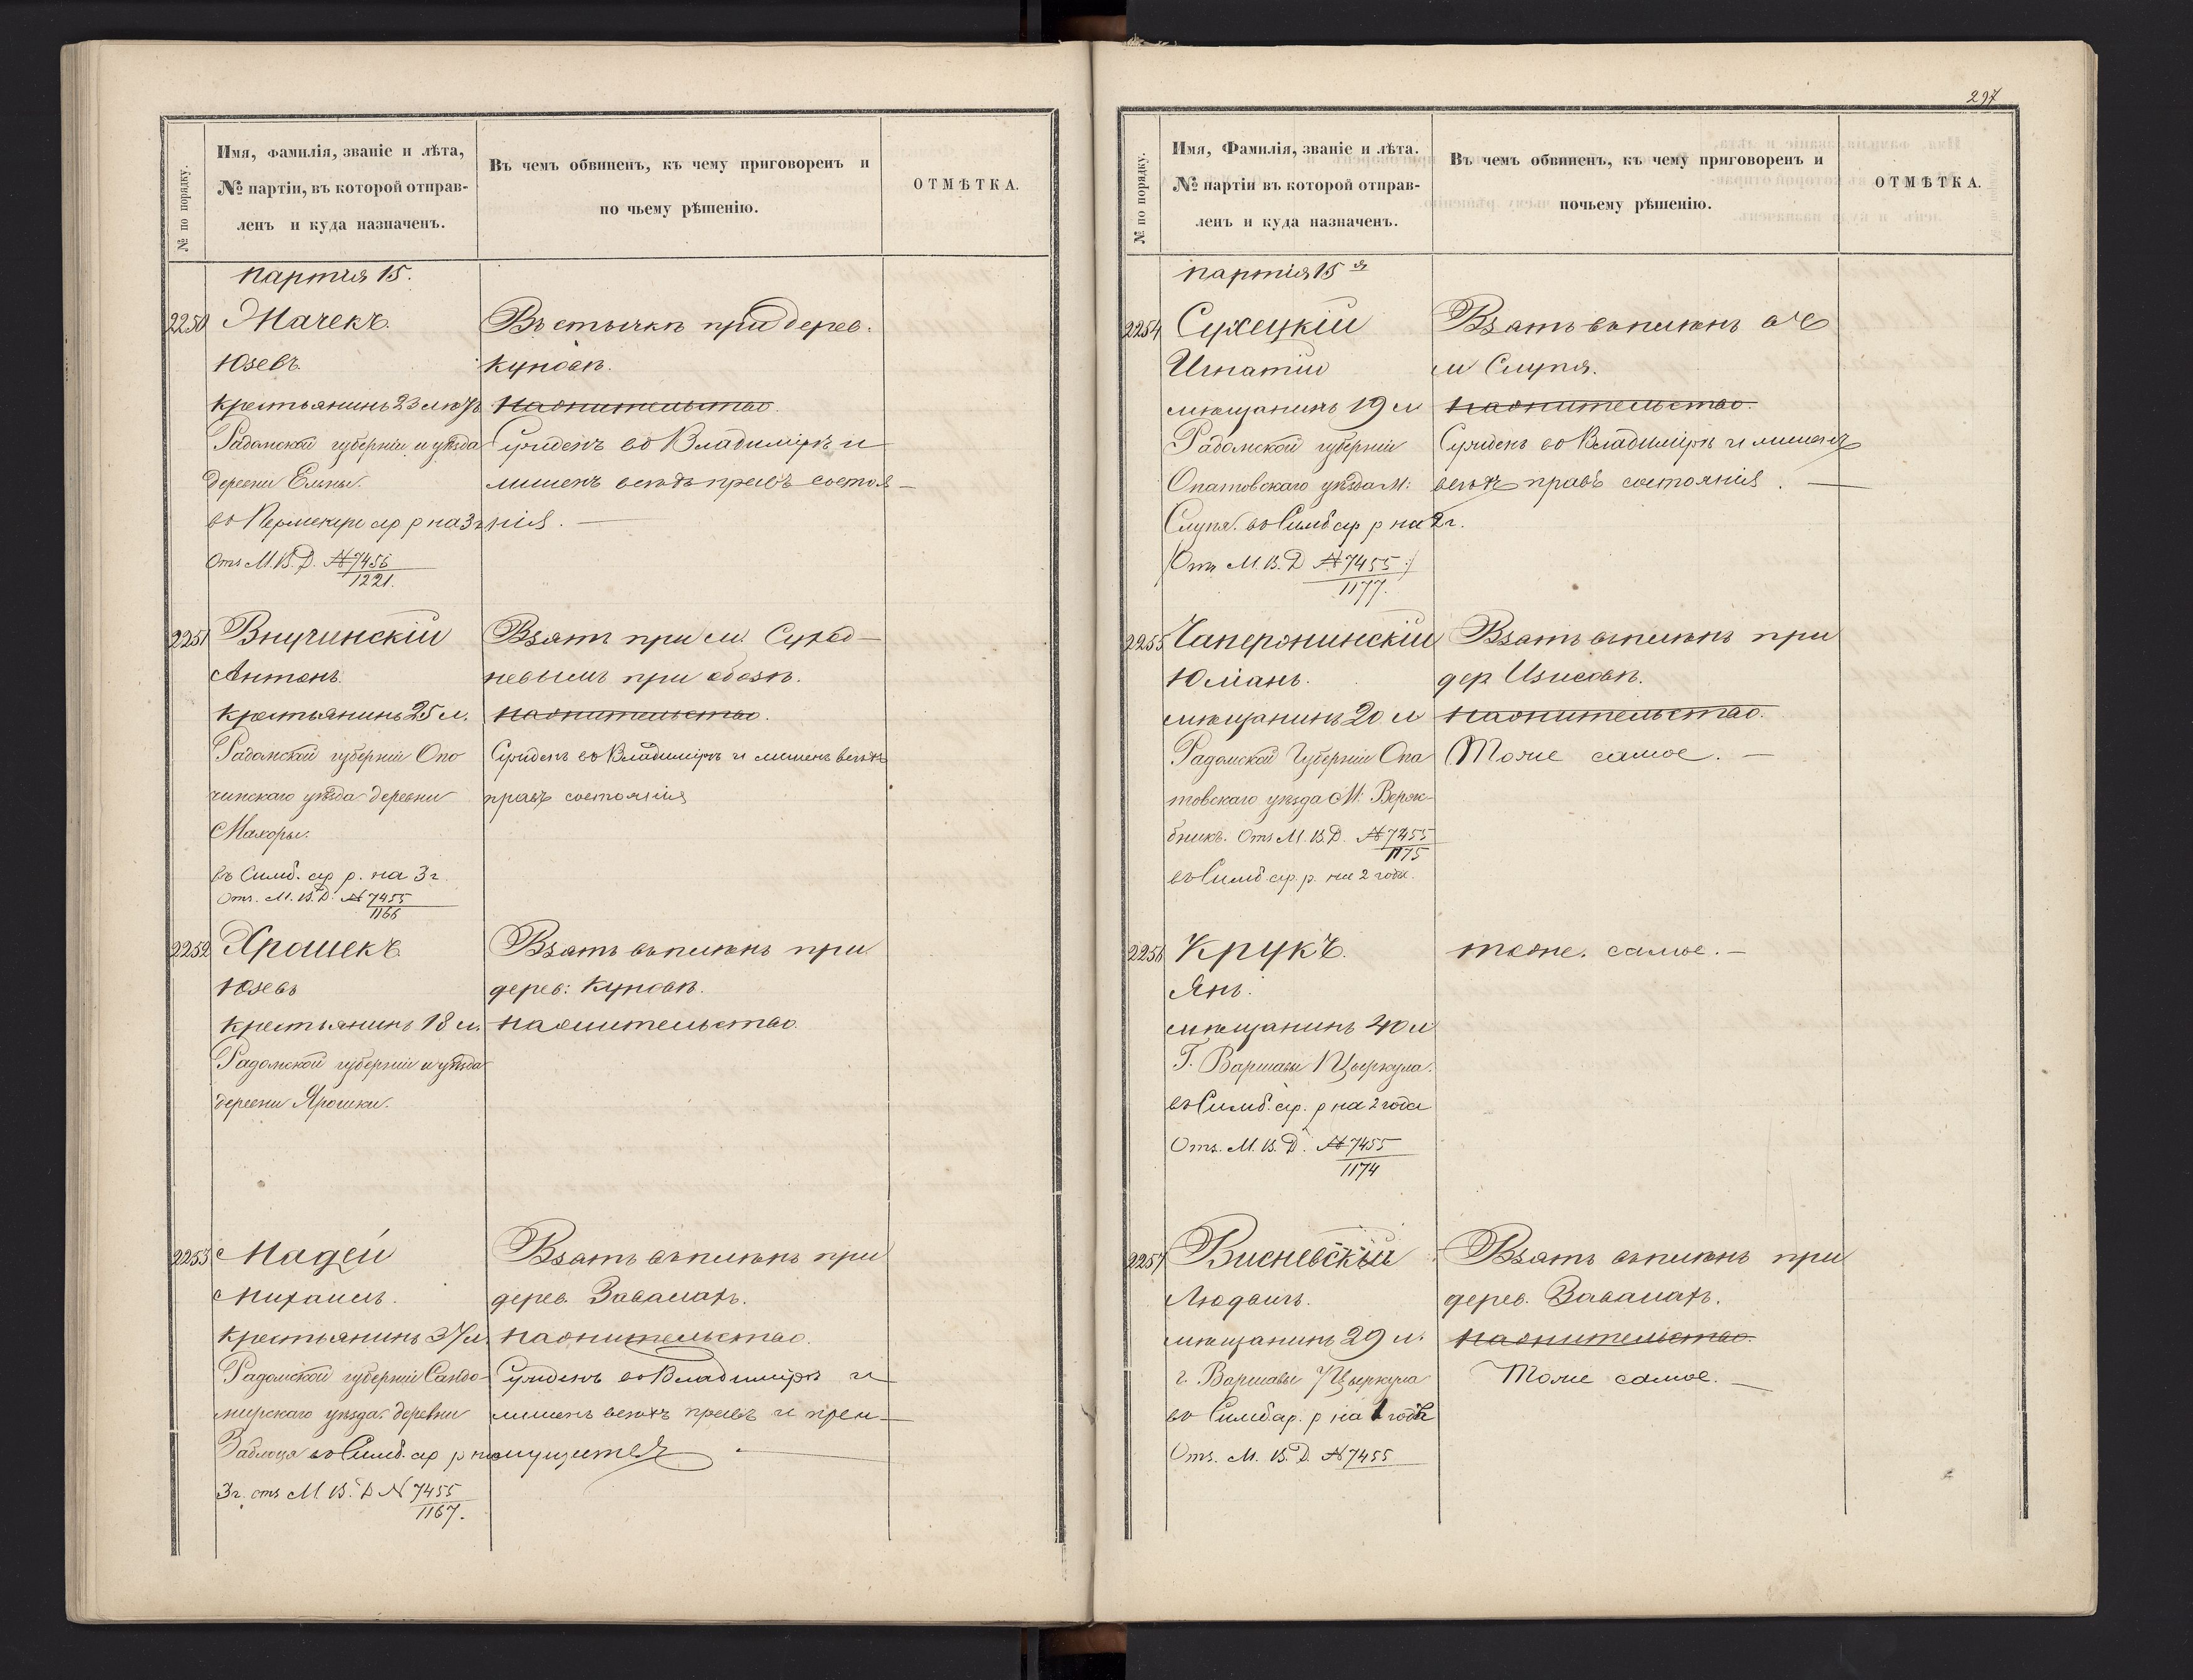 № по порядку.
Имя, фамилія, званіе и лѣта,
№ партіи, въ которой отправ-
ленъ и куда назначенъ.
Въ чемъ обвиненъ, къ чему приговоренъ и
по чьему рѣшенію.
ОТМѢТКА.
партія 15.
2250 Мачекъ.
Юзевъ.
крестьянинъ 23 лѣтъ
Радомской губерніи и уѣзда
деревни Ельны.
ар р на 3 г
Отъ М.В.Д. №7456
1221.
Въ стычкѣ при дерев.
Куновѣ.
на жительство.
Сужденъ во Владимірѣ и
лишенъ всѣхъ правъ состоя-
нія.
2251 Внучинскій
Антонъ.
крестьянинъ 25 л.
Радомской губерніи Опо
чинскаго уѣзда деревни
Махоры.
въ Симб. ар р. на 3 г
Отъ. М.В.Д. №7455
1166
Взятъ при м. Сухед-
невымъ при обозѣ.
на жительство.
Сужденъ во Владимірѣ и лишенъ всѣхъ
правъ состоянія
2252 Ярошекъ
Юзевъ
крестьянинъ 18 л.
Радомской губерніи и уѣзда
деревни Ярошки.
Взятъ въ плѣнъ при
дерев: Куновѣ.
на жительство.
2253 Мадей
Михаилъ.
крестьянинъ 37 л.
Радомской губерніи Сандо-
мирскаго уѣзда деревни
въ Симб. ар р на
3 г. отъ М.В.Д №7455
1167.
Взятъ въ плѣнъ при
дерев. Завалахъ.
на жительство.
Сужденъ во Владимірѣ и
лишенъ всѣхъ правъ и преи-
муществъ
297
№ по порядку.
Имя, Фамилія, званіе и лѣта.
№ партіи въ которой отправ-
ленъ и куда назначенъ.
Въ чемъ обвиненъ, къ чему приговоренъ и
почьему рѣшенію.
ОТМѢТКА.
партія 15 я
2254 Сухецкій
Игнатій
мѣщанинъ 19 л
Радомской губерніи
Опатовскаго уѣзда М:
Слупя. въ Симб ар р на 2 г.
Отъ М.В.Д №7455
1177.
Взятъ въ плѣнъ
м Слупя.
на жительство.
Сужденъ во Владимірѣ и лишенъ
всѣхъ правъ состоянія.
2255 Чаперонинскій
Юліанъ.
мѣщанинъ 20 л
Радомской Губерніи Опа
товскаго уѣзда М: Верж-
бникъ. Отъ М.В.Д. №7455
1175
въ Симб. ар. р. на 2 года.
Взятъ въ плѣнъ при
дер
на жительство.
Тоже самое.
2256 Крукъ.
Янъ.
мѣщанинъ 40 л
Г. Варшавы 1 Цыркула.
въ Симб. ар. р на 2 года
Отъ. М.В.Д. №7455
1174
тоже. самое.
2257 Висневскій
Людвигъ.
мѣщанинъ 29 л.
г. Варшавы 7 Цыркула
въ Симб ар. р на 1 годъ
Отъ. М.В.Д. №7455
Взятъ въ плѣнъ при
дерев. Завалахъ.
на жительство.
Тоже самое.